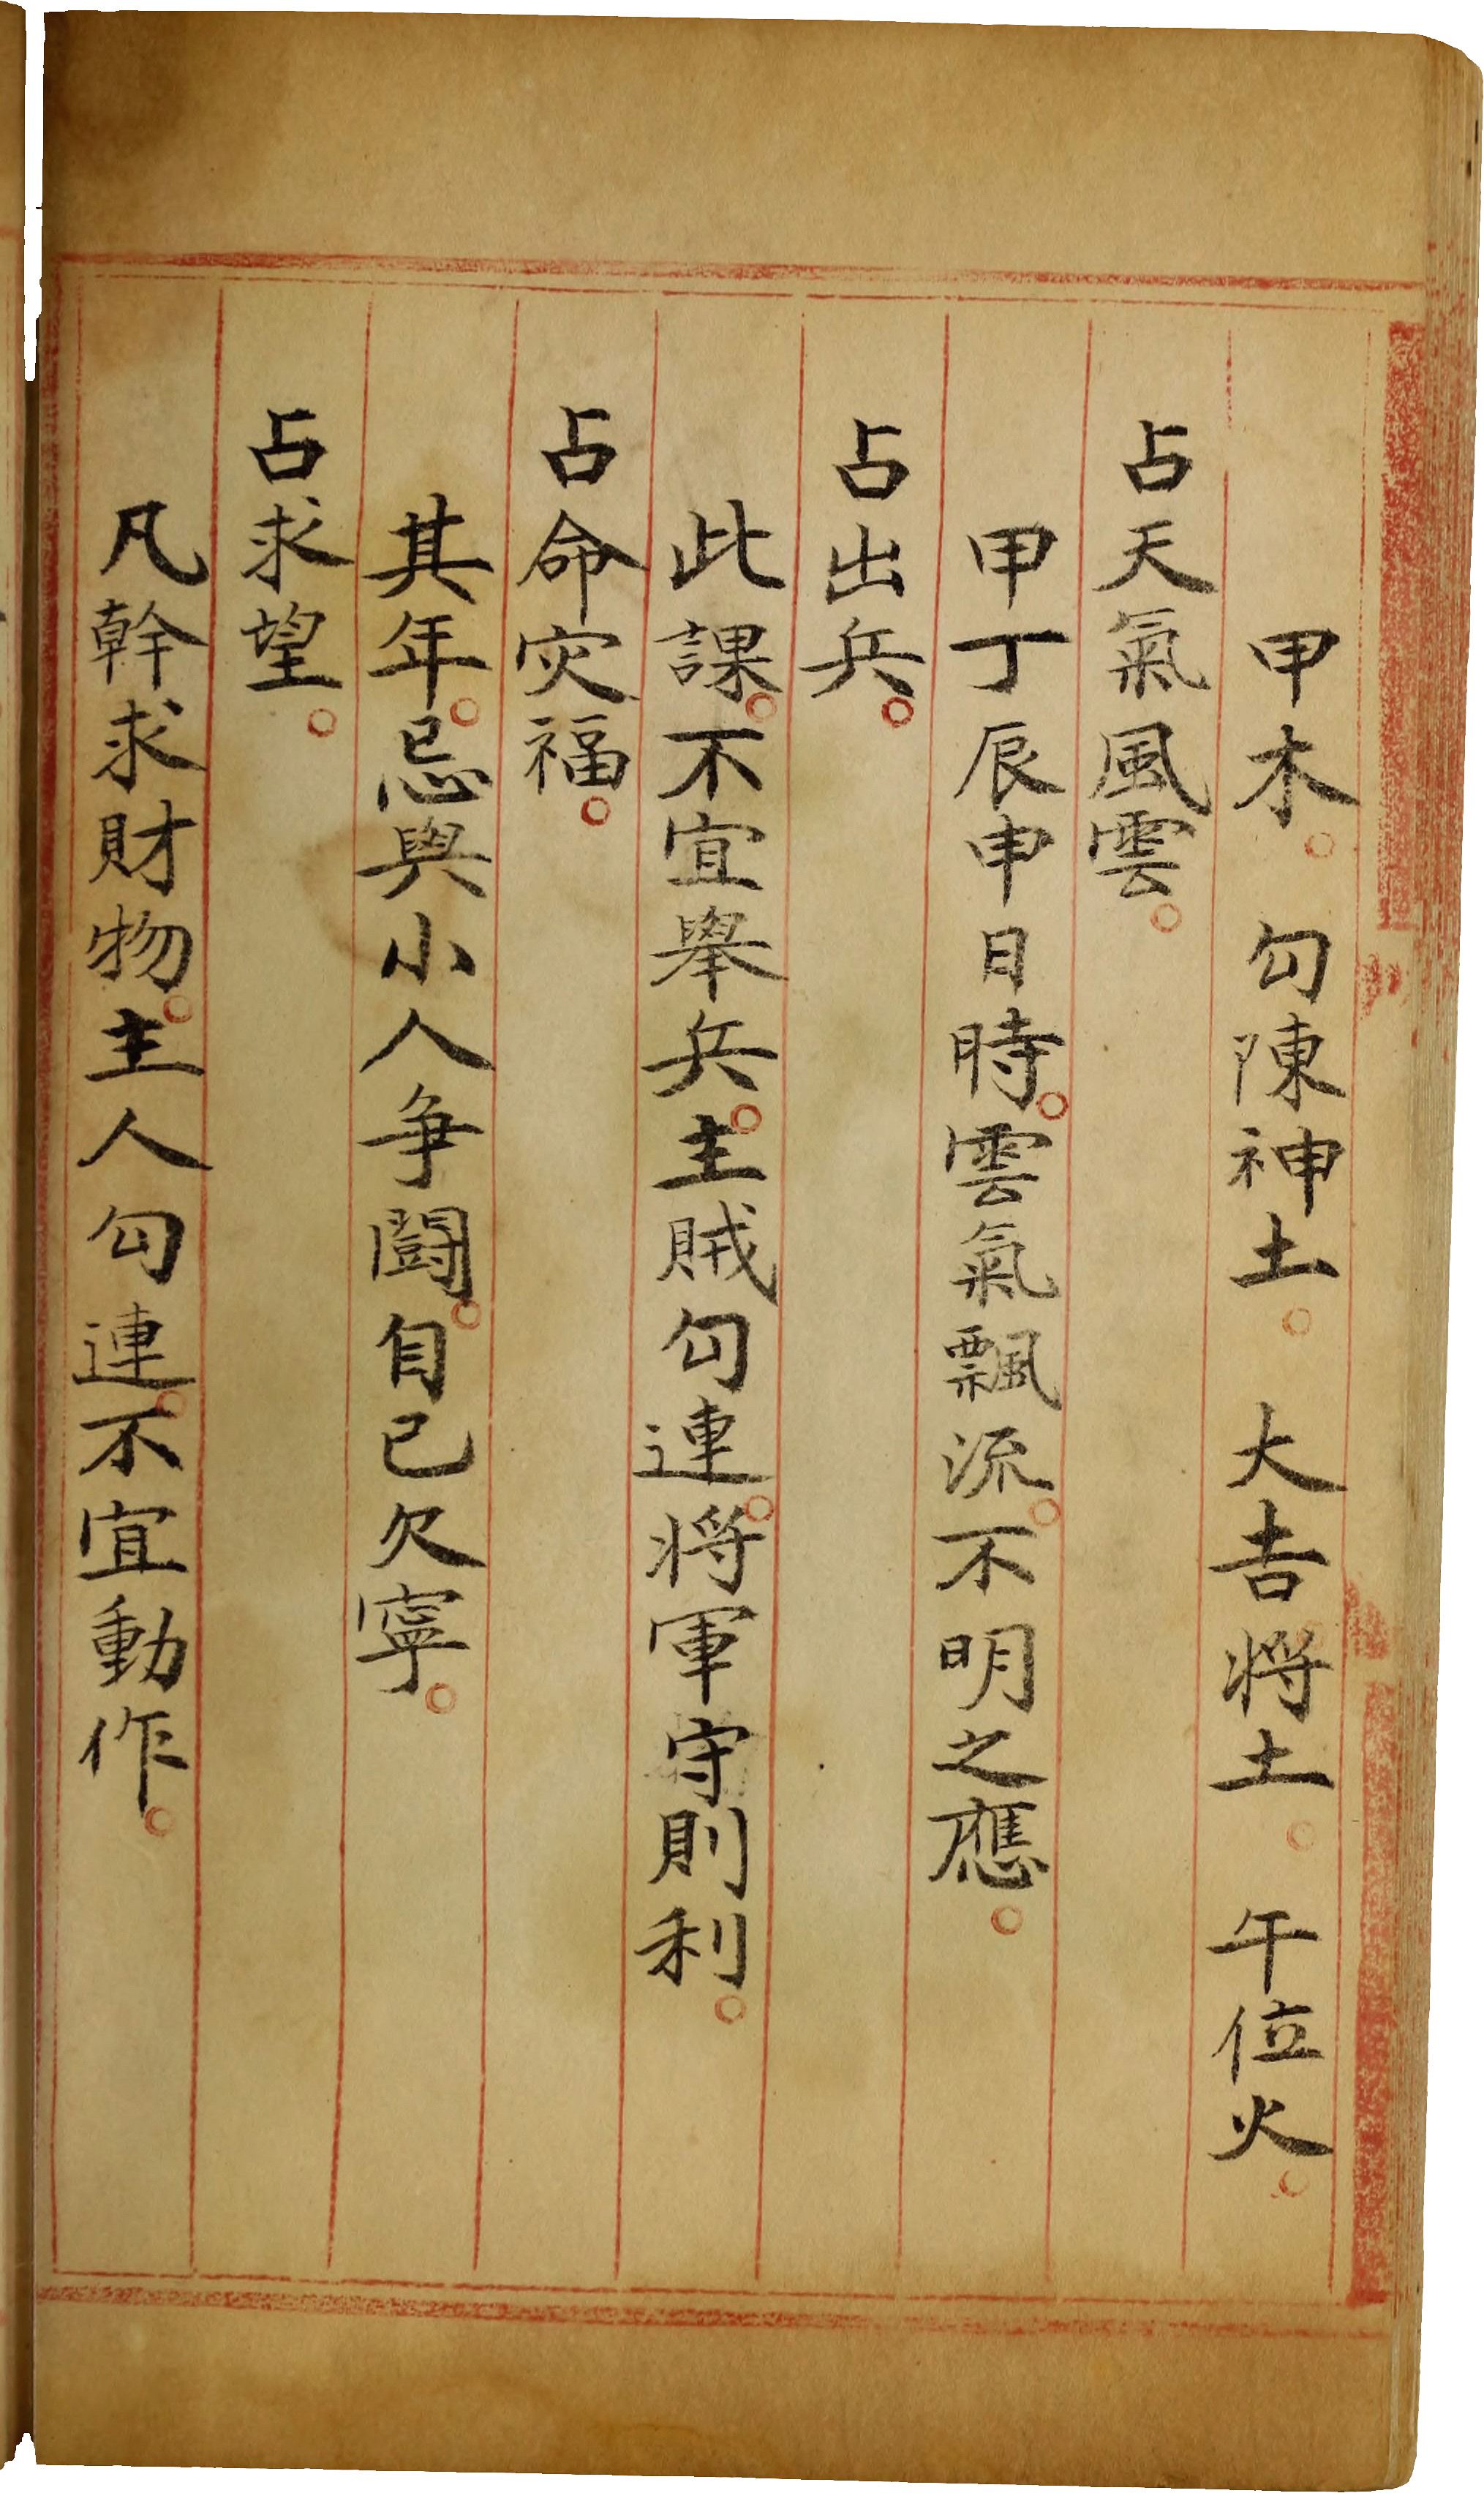 甲木。勾陳神土。大吉将土。午位火。
占天氣風雲。
甲丁辰申日時。雲氣飄流。不明之應。
占出兵。
此課。不宜舉兵。主賊勾連。将軍守則利。
占命灾福。
其年。忌與小人争鬪。自己欠寧。
占求望。
凡幹求財物。主人勾連。不宜動作。